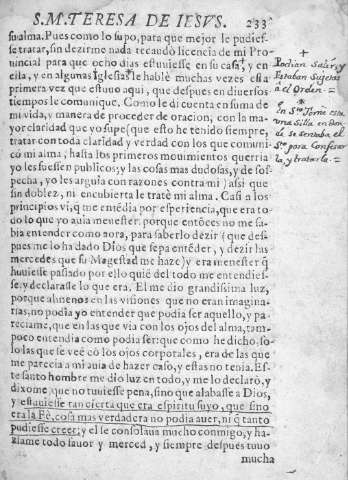 S. M. TERESA DE IESVS. 233
su alma. Pues como lo supo, para que mejor le pudies-
se tratar, sin dezirme nada recaudó licencia de mi Pro-
uincial para que ocho dias estuuiesse en su casa, y en
ella, y en algunas Iglesias le hablè muchas vezes esta
primera vez que estuuo aqui, que despues en diuersos
tiempos le comunique. Como le di cuenta en suma de
mi vida, y manera de proceder de oracion, con la ma-
yor claridad que yo supe (que esto he tenido siempre,
tratar con toda claridad y verdad con los que comuni-
cò mi alma, hasta los primeros mouimientos querria
yo les fuessen publicos; y las cosas mas dudosas, y de sos-
pecha, yo les arguìa con razones contra mi) assi que
sin doblez, ni encubierta le tratè mi alma. Casi a los
principios vi, q̃ me entẽdia por esperiencia, que era to-
do lo que yo auia menester. porque entõces no me sa-
bia entender como aora, para saberlo dezir (que des-
pues me lo ha dado Dios que sepa entẽder, y dezir las
mercedes que su Magestad me haze) y era menester q̃
huuiesse pasado por ello quiẽ del todo me entendies-
se, y declarasse lo que era. El me dio grandissima luz,
porque alomenos en las visiones que no eran imagina-
rias, no podia yo entender que podia ser aquello, y pa-
reciame, que en las que via con los ojos del alma, tam-
poco entendia como podia ser: que como he dicho, so-
lo las que se veẽ cõ los ojos corporales, era de las que
me parecia a mi auia de hazer caso, y estas no tenia. Es-
te santo hombre me dio luz en todo, y me lo declarò, y
dixome que no tuuiesse pena, sino que alabasse a Dios,
y estuuiesse tan cierta que era espiritu suyo, que sino
era la Fè, cosa mas verdadera no podia auer, ni q̃ tanto
pudiesse creer; y el se consolaua mucho conmigo, y ha-
ziame todo fauor y merced, y siempre despues tuuo
mucha
+
Podian Salir, y
Estaban Sujetas
à el Orden
+